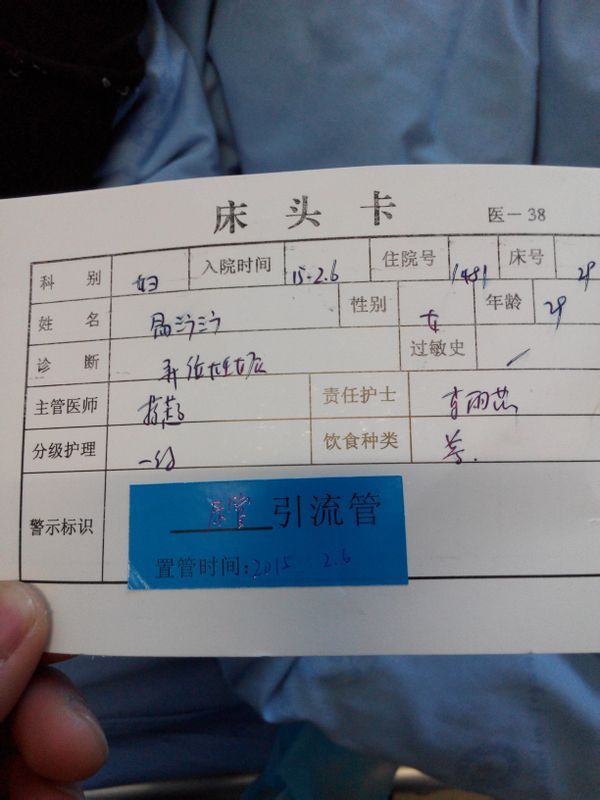 床头卡 医-38
科别 妇 入院时间 15.2.6 住院号 1481 床号 29
姓名 性别 女 年龄 29
诊断 过敏史 /
主管医师 责任护士
分级护理 一级 饮食种类
警示标识 尿管 引流管
置管时间:2015 2.6